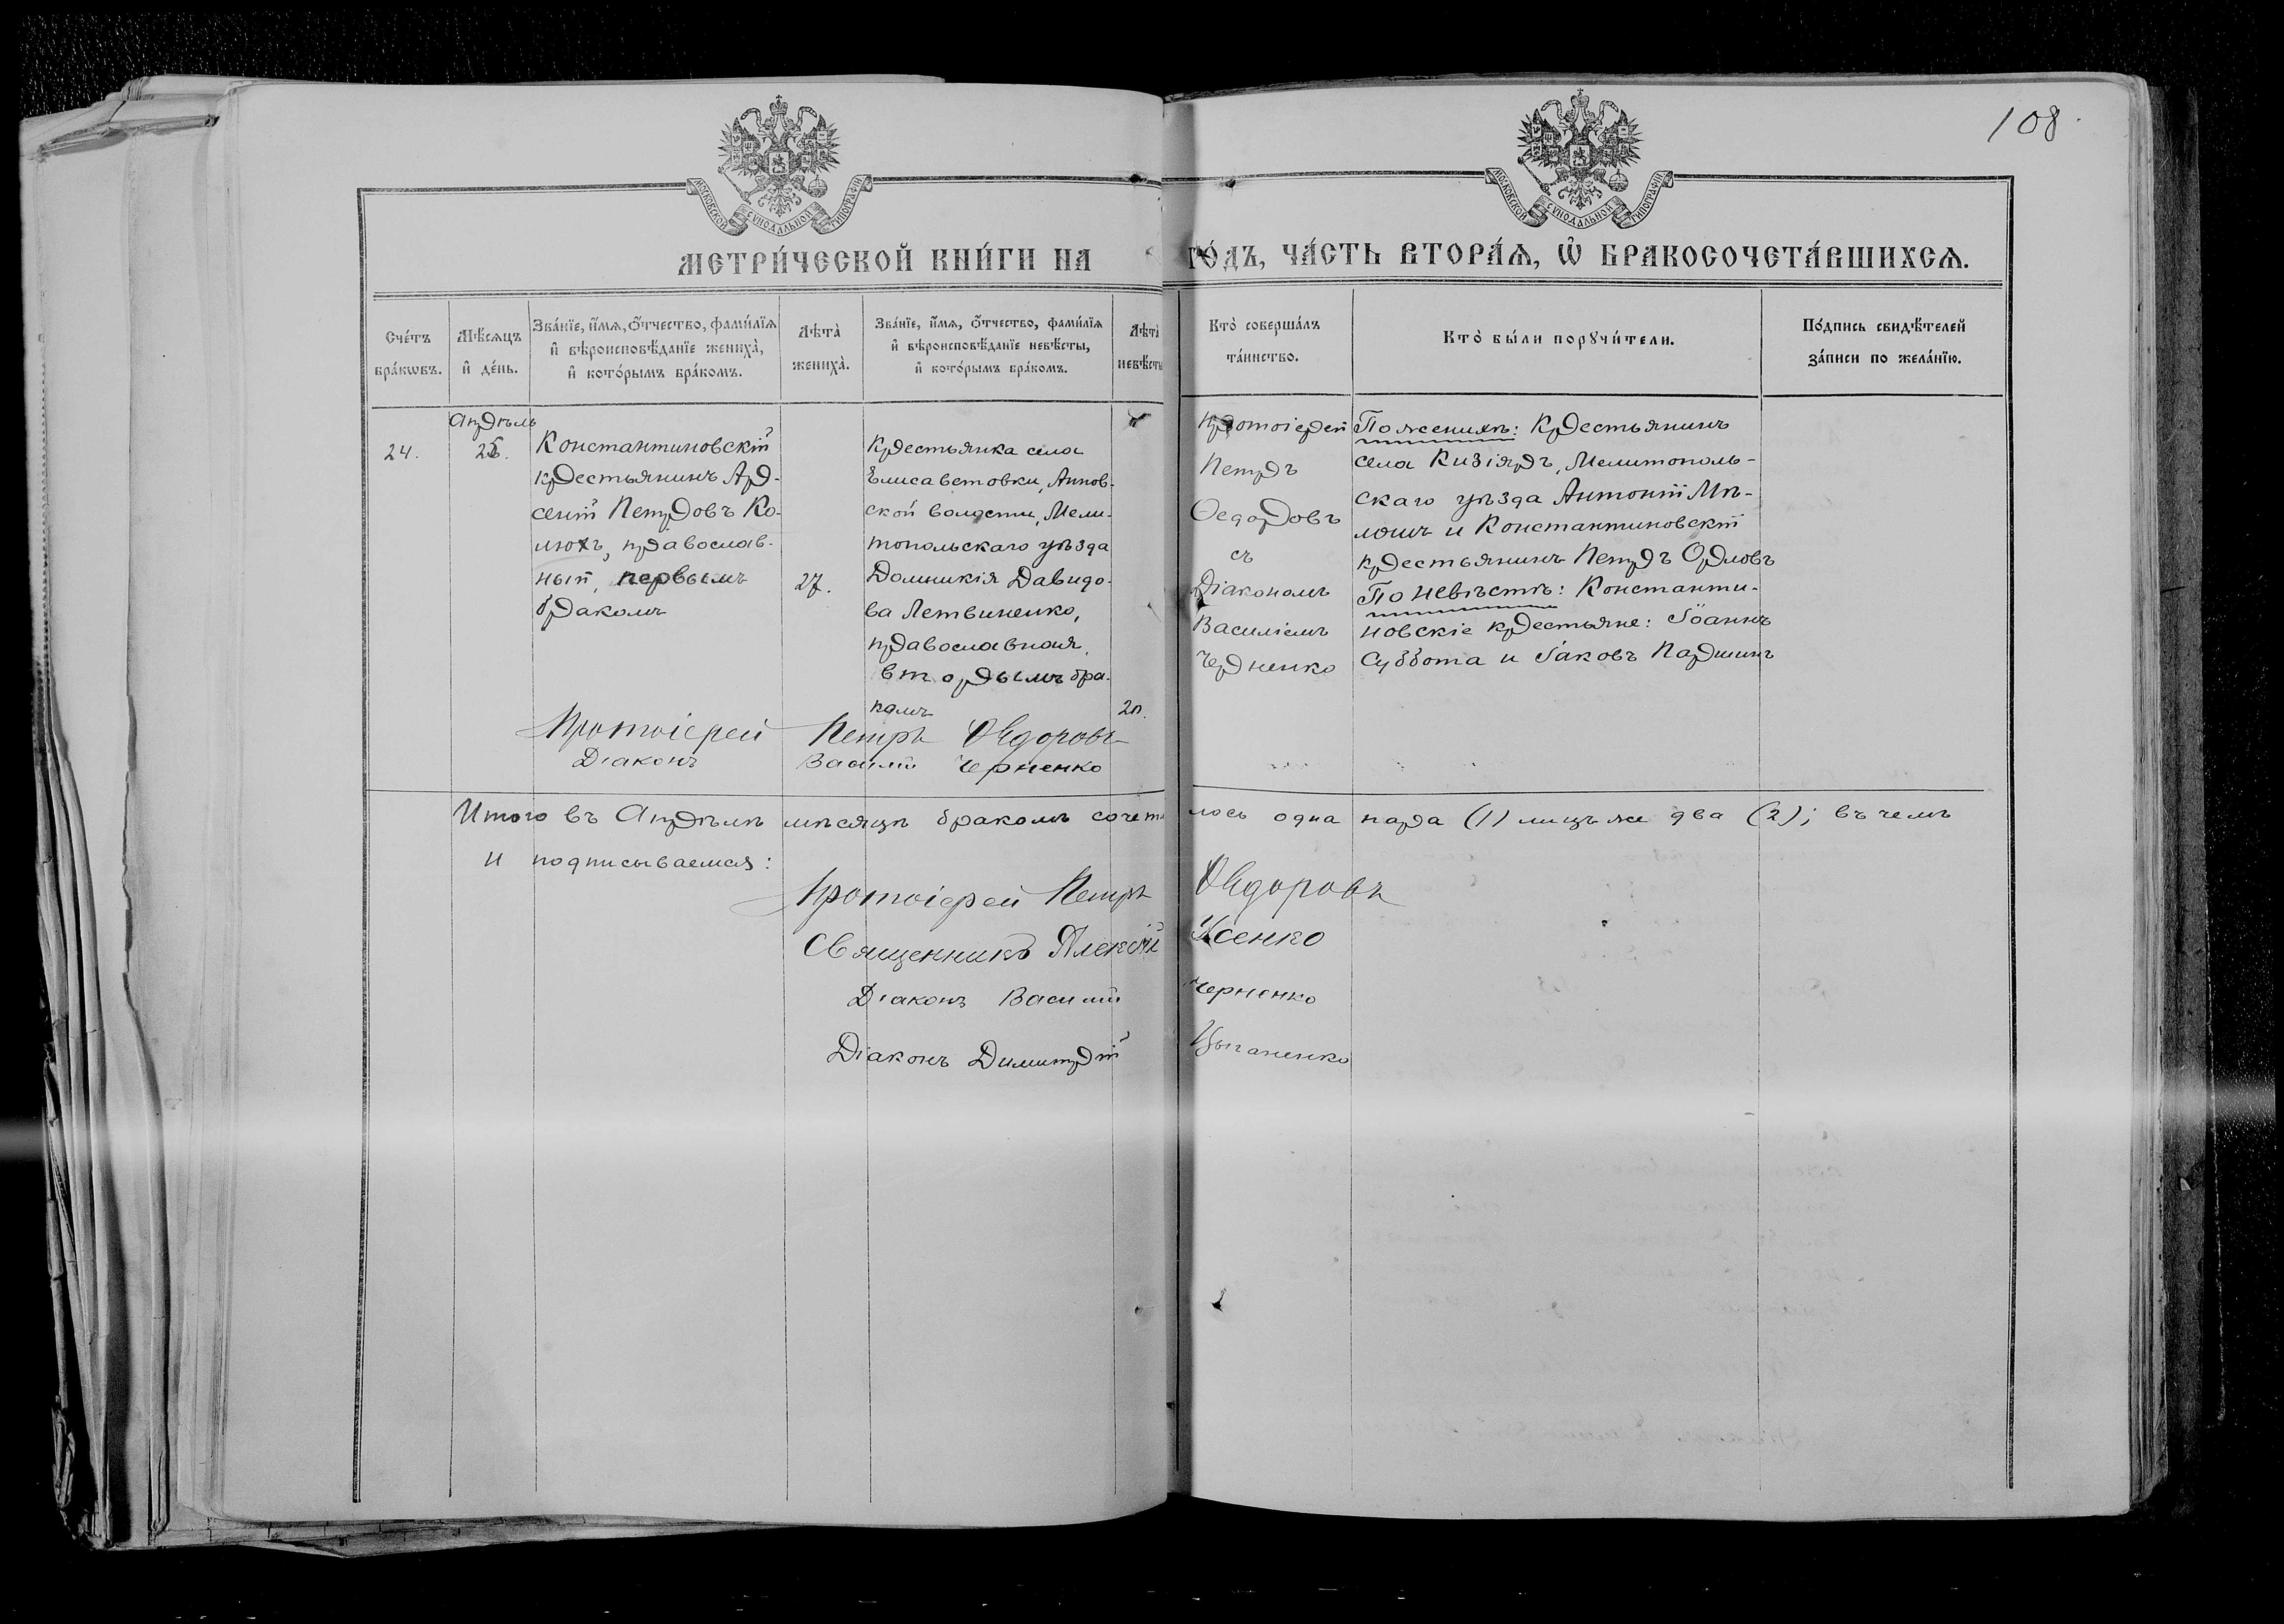 108
МОСКОВСКОЙ СѴНОДАЛЬНОЙ ТИПОГРАФІИ
МОСКОВСКОЙ СѴНОДАЛЬНОЙ ТИПОГРАФІИ
МЕТРИ́ЧЕСКОЙ КНИ́ГИ НА ГО́ДЪ, ЧА́СТЬ ВТОРА́Ѧ, Ѡ҆ БРАКОСОЧЕТА́ВШИХСѦ.
Сче́тъ бра́кѡвъ.
Мѣ́сѧцъ и҆ де́нь.
Зва́нїе, и҆́мѧ, ѻ҆́тчество, фами́лїѧ и҆ вѣроисповѣ́данїе жениха̀, и҆ кото́рымъ бра́комъ.
Лѣта̀ жениха̀.
Зва́нїе, и҆́мѧ, ѻ҆́тчество, фами́лїѧ и҆ вѣроисповѣ́данїе невѣ́сты, и҆ кото́рымъ бра́комъ.
Лѣта̀ невѣ́сты
Кто̀ соверша́лъ та́инство.
Кто̀ бы́ли порꙋчи́тели.
По́дпись свидѣ́телей за́писи по жела́нїю.
24.
Апрѣль
Константиновскій
крестьянинъ Ар-
сеній Петровъ Ко-
нюхъ, православ-
ный, первымъ
бракомъ
27.
Крестьянка села
Елисаветовки, Аннов-
ской волости, Мели-
топольскаго уѣзда
Домникія Давидо-
ва Летвиненко,
православная,
вторымъ бра-
комъ
Протоіерей
Петръ
Ѳедоровъ
съ
Діакономъ
Василіемъ
Черненко
По женихѣ: Крестьянинъ
села Кизіяръ, Мелитополь-
скаго уѣзда Антоній Мѣ-
лошъ и Константиновскій
крестьянинъ Петръ Орловъ
По невѣстѣ: Константи-
новскіе крестьяне: Іоаннъ
Суббота и Іаковъ Паршинъ
Протоіерей Петръ Ѳедоровъ
Діаконъ Василій Черненко
Итого въ Апрѣлѣ мѣсяцѣ бракомъ сочета лось одна пара (1) лицъ же два (2); въ чемъ
и подписываемся:
Протоіерей Петръ Ѳедоровъ
Священникъ Алексій Усенко
Діаконъ Василій Черненко
Діаконъ Димитрій Цыганенко